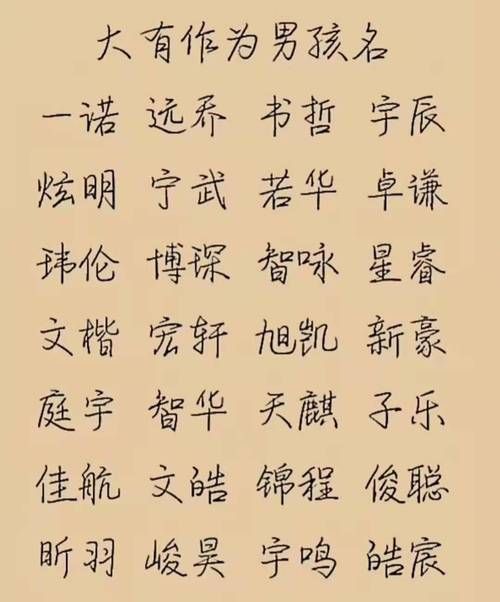 大有作为男孩名
一诺 远乔 书哲 宇辰
炫明 宁武 若华 卓谦
玮伦 博琛 智咏 星睿
文楷 宏轩 旭凯 新豪
庭宇 智华 天麒 子乐
佳航 文皓 锦程 俊聪
昕羽 峻昊 宇鸣 皓宸